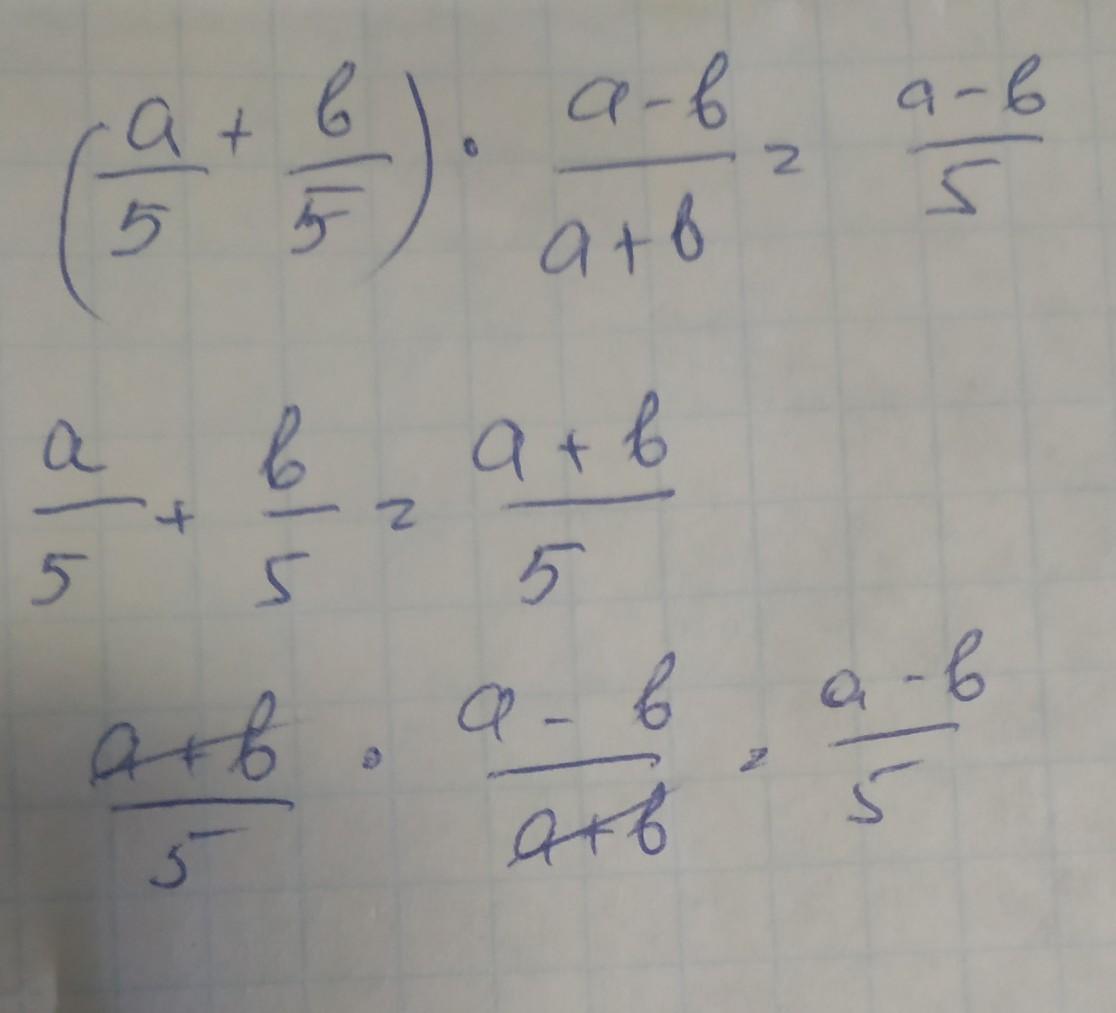 (a/5 + b/5) · (a-b)/(a+b) = (a-b)/5
a/5 + b/5 = (a+b)/5
(a+b)/5 · (a-b)/(a+b) = (a-b)/5